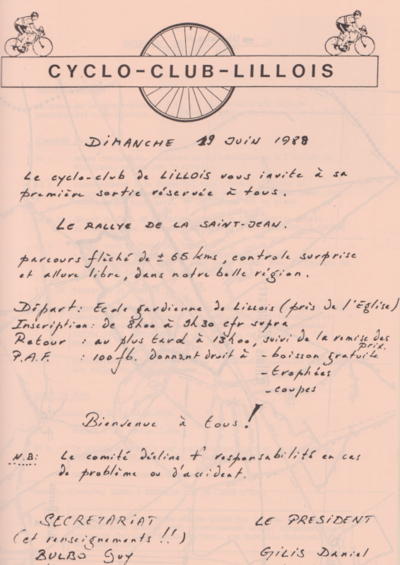 CYCLO-CLUB-LILLOIS
DIMANCHE 19 JUIN 1988
Le cyclo-club de LILLOIS vous invite à sa
première sortie réservée à tous.
LE RALLYE DE LA SAINT-JEAN.
parcours fléché de ± 65 kms, controle surprise
et allure libre, dans notre belle région.
Départ: Ecole gardienne de Lillois (près de l'Eglise)
Inscription: de 8h00 à 9h30 cfr supra
Retour : au plus tard à 13h00, suivi de la remise des
prix.
P.A.F. : 100fb. donnant droit à - boisson gratuite
- trophées
- coupes
Bienvenue à tous!
N.B: Le comité décline tte responsabilités en cas
de problème ou d'accident.
SECRETARIAT LE PRESIDENT
(et renseignements !!)
BULBO Guy GILIS Daniel